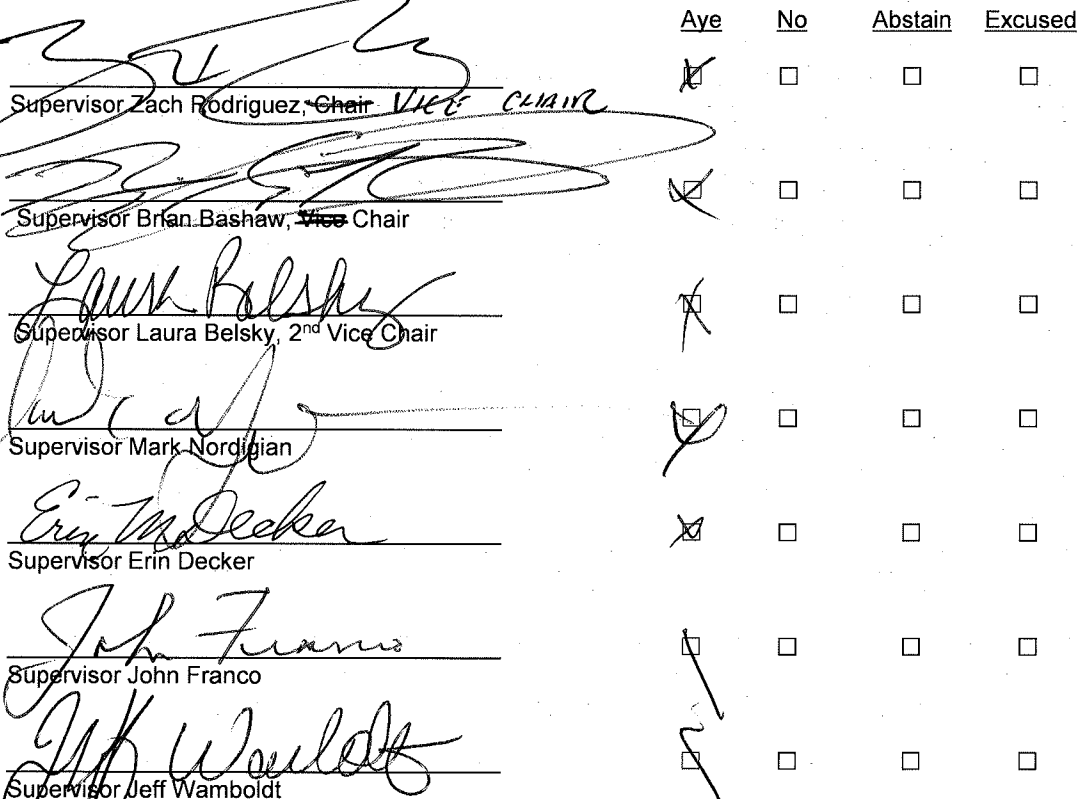 Aye No Abstain Excused
Supervisor Zach Rodriguez, Chair VICE CHAIR
Supervisor Brian Bashaw, Vice Chair
Laura Belsky
Supervisor Laura Belsky, 2nd Vice Chair
Supervisor Mark Nordigian
Erin M Decker
Supervisor Erin Decker
John Franco
Supervisor John Franco
Jeff Wamboldt
Supervisor Jeff Wamboldt